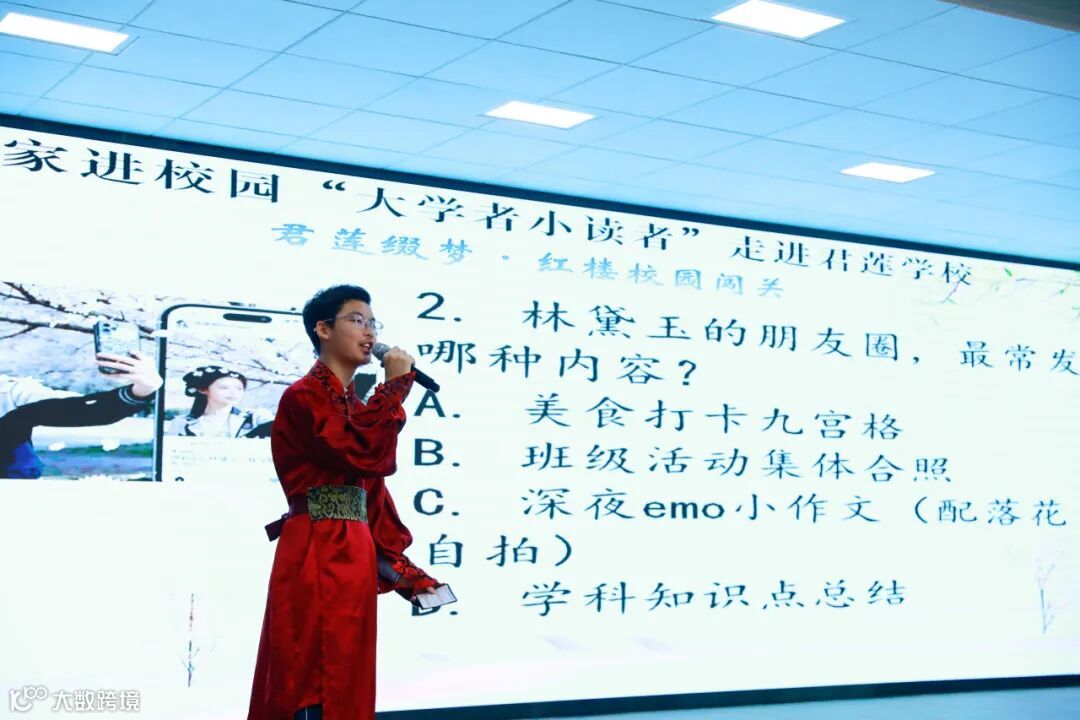 家进校园“大学者小读者”走进君莲学校
君莲缀梦·红楼校园闯关
2. 林黛玉的朋友圈，最常发
哪种内容？
A. 美食打卡九宫格
B. 班级活动集体合照
C. 深夜emo小作文（配落花
自拍）
D. 学科知识点总结
大数跨境